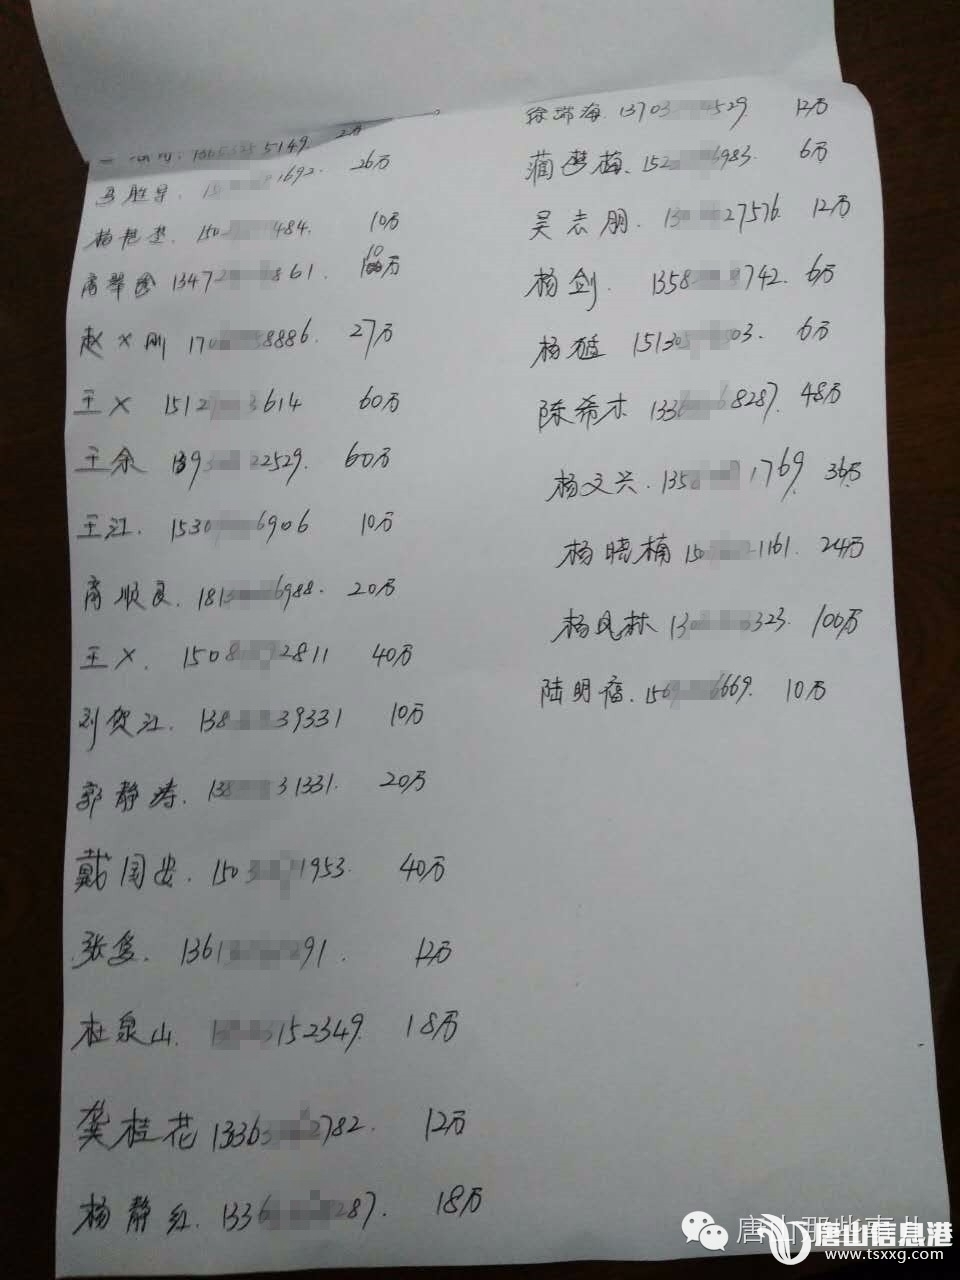 5149. 2万
1692. 26万
484. 10万
1347 861. 10万
赵×刚 170 8886. 27万
王× 1512 3614 60万
王余 22529. 60万
王江. 1530 6906 10万
商顺良. 181 6988. 20万
王×. 1508 2811 40万
刘贺江. 138 39331 10万
郭静涛. 13 31331. 20万
戴国安. 150 1953. 40万
张 1361 91. 12万
杜泉山. 152349. 18万
龚桂花 13363 2782. 12万
杨静红. 1336 287. 18万
徐瑞海. 13703 4529. 12万
蔺梦梅. 152 6983. 6万
吴志朋. 13 27576. 12万
杨剑. 1358 742. 6万
杨 15130 03. 6万
陈希木 133 68287. 48万
杨文兴. 135 1769. 36万
杨晓楠 150 1161. 24万
杨凤林 13 323. 100万
陆明福. 156 6669. 10万
唐山那些事儿
唐山信息港
www.tsxxg.com